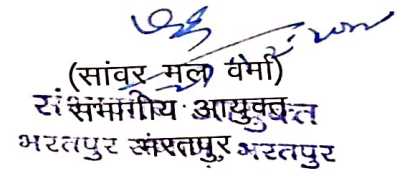 (सांवर मल वर्मा)
संभागीय आयुक्त
भरतपुर भरतपुर भरतपुर